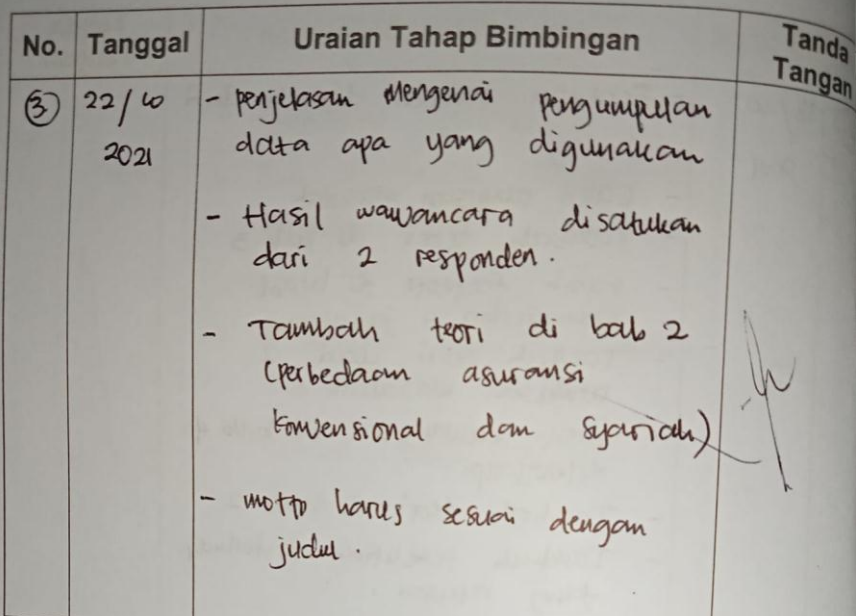 No. Tanggal Uraian Tahap Bimbingan Tanda Tangan
③ 22/10 2021
- penjelasan Mengenai pengumpulan
data apa yang digunakan
- Hasil wawancara disatukan
dari 2 responden.
- Tambah teori di bab 2
(perbedaan asuransi
konvensional dan syariah)
- motto harus sesuai dengan
judul.